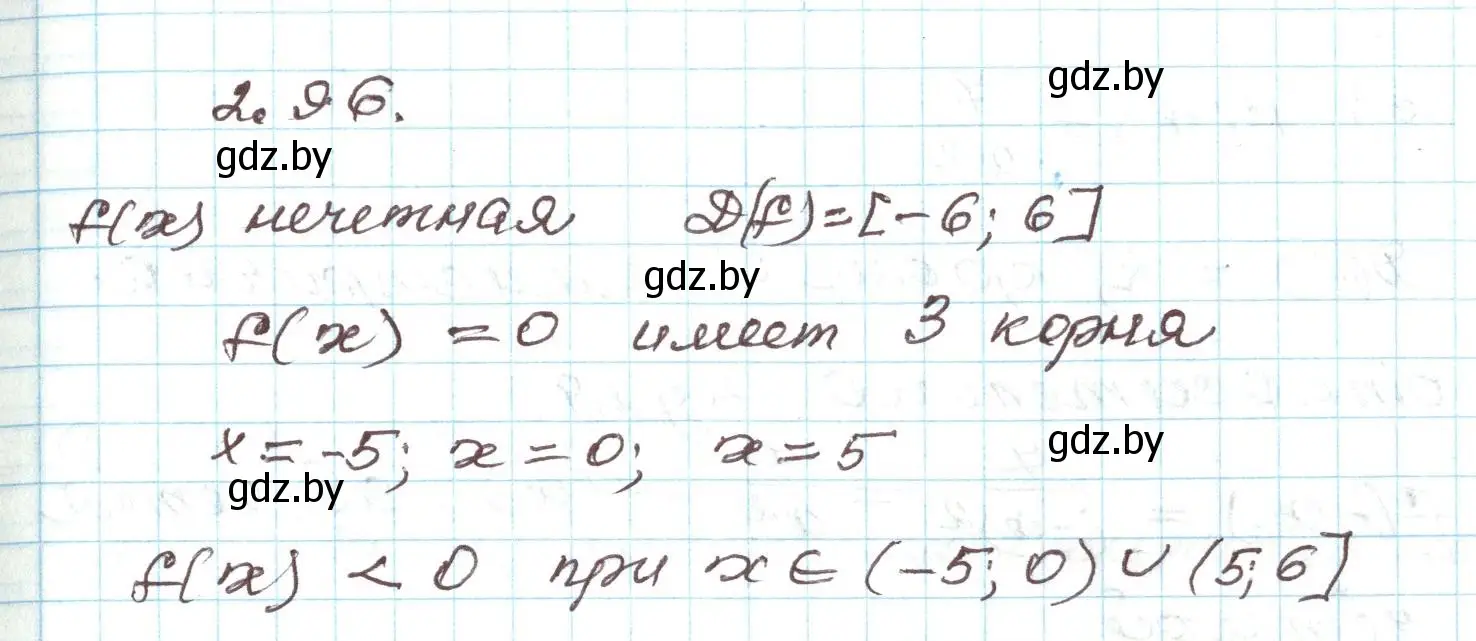 gdz.by
2.96.
gdz.by
f(x) нечетная D(f)=[-6; 6]
gdz.by
f(x) = 0 имеет 3 корня
x = -5; x = 0; x = 5
gdz.by
gdz.by
f(x) < 0 при x ∈ (-5; 0) ∪ (5; 6]